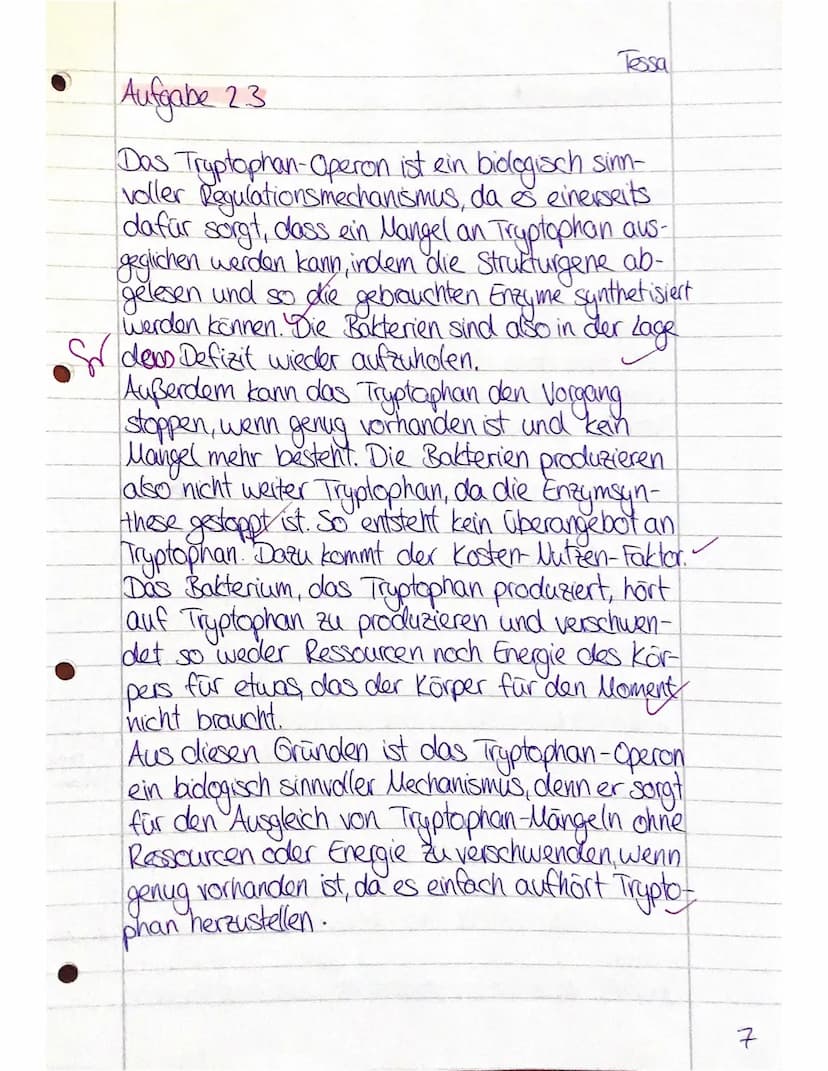 Tessa
Aufgabe 2.3
Das Tryptophan-Operon ist ein biologisch sinn-
voller Regulationsmechanismus, da es einerseits
dafür sorgt, dass ein Mangel an Tryptophan aus-
geglichen werden kann, indem die Strukturgene ab-
gelesen und so die gebrauchten Enzyme synthetisiert
werden können. Die Bakterien sind also in der Lage
Defizit wieder aufzuholen.
Außerdem kann das Tryptophan den Vorgang
stoppen, wenn genug vorhanden ist und kein
Mangel mehr besteht. Die Bakterien produzieren
also nicht weiter Tryptophan, da die Enzymsyn-
these gestoppt ist. So entsteht kein Überangebot an
Tryptophan. Dazu kommt der Kosten-Nutzen-Faktor.
Das Bakterium, das Tryptophan produziert, hört
auf Tryptophan zu produzieren und verschwen-
det so weder Ressourcen noch Energie des Kör-
pers für etwas, das der Körper für den Moment
nicht braucht.
Aus diesen Gründen ist das Tryptophan-Operon
ein biologisch sinnvoller Mechanismus, denn er sorgt
für den Ausgleich von Tryptophan-Mängeln ohne
Ressourcen oder Energie zu verschwenden, wenn
genug vorhanden ist, da es einfach aufhört Trypto-
phan herzustellen.
7